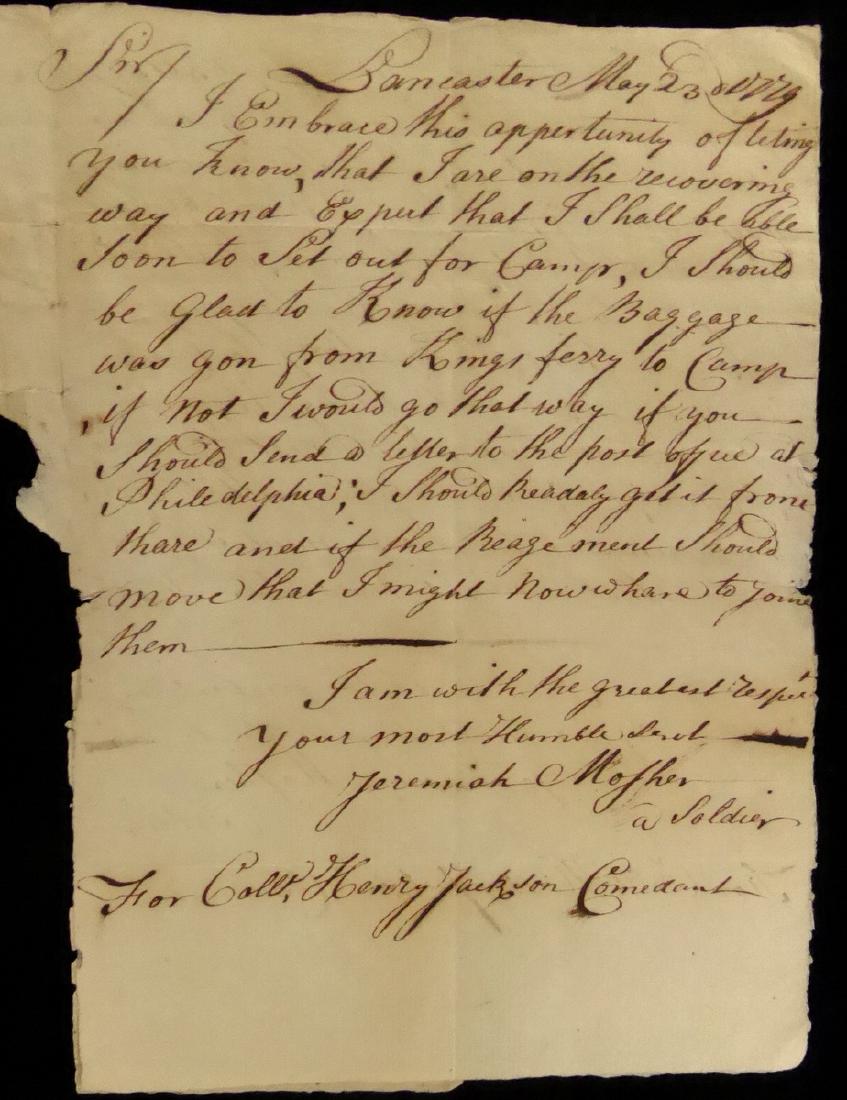 Sir/ Lancaster May 23d 1779
I Embrace this appertunity of leting
you know, that I are on the recovering
way and Expect that I Shall be able
Soon to Set out for Camp, I Should
be Glad to Know if the Baggage
was gon from Kings ferry to Camp
, if Not I would go that way if you
Should Send a letter to the post office at
Philadelphia; I Should Readaly get it from
thare and if the Reagement Should
move that I might Now whare to joine
them
I am with the greatest respect
your most Humble Servt
Jeremiah Mosher
a Soldier
For Colln. Henry Jackson Comedant